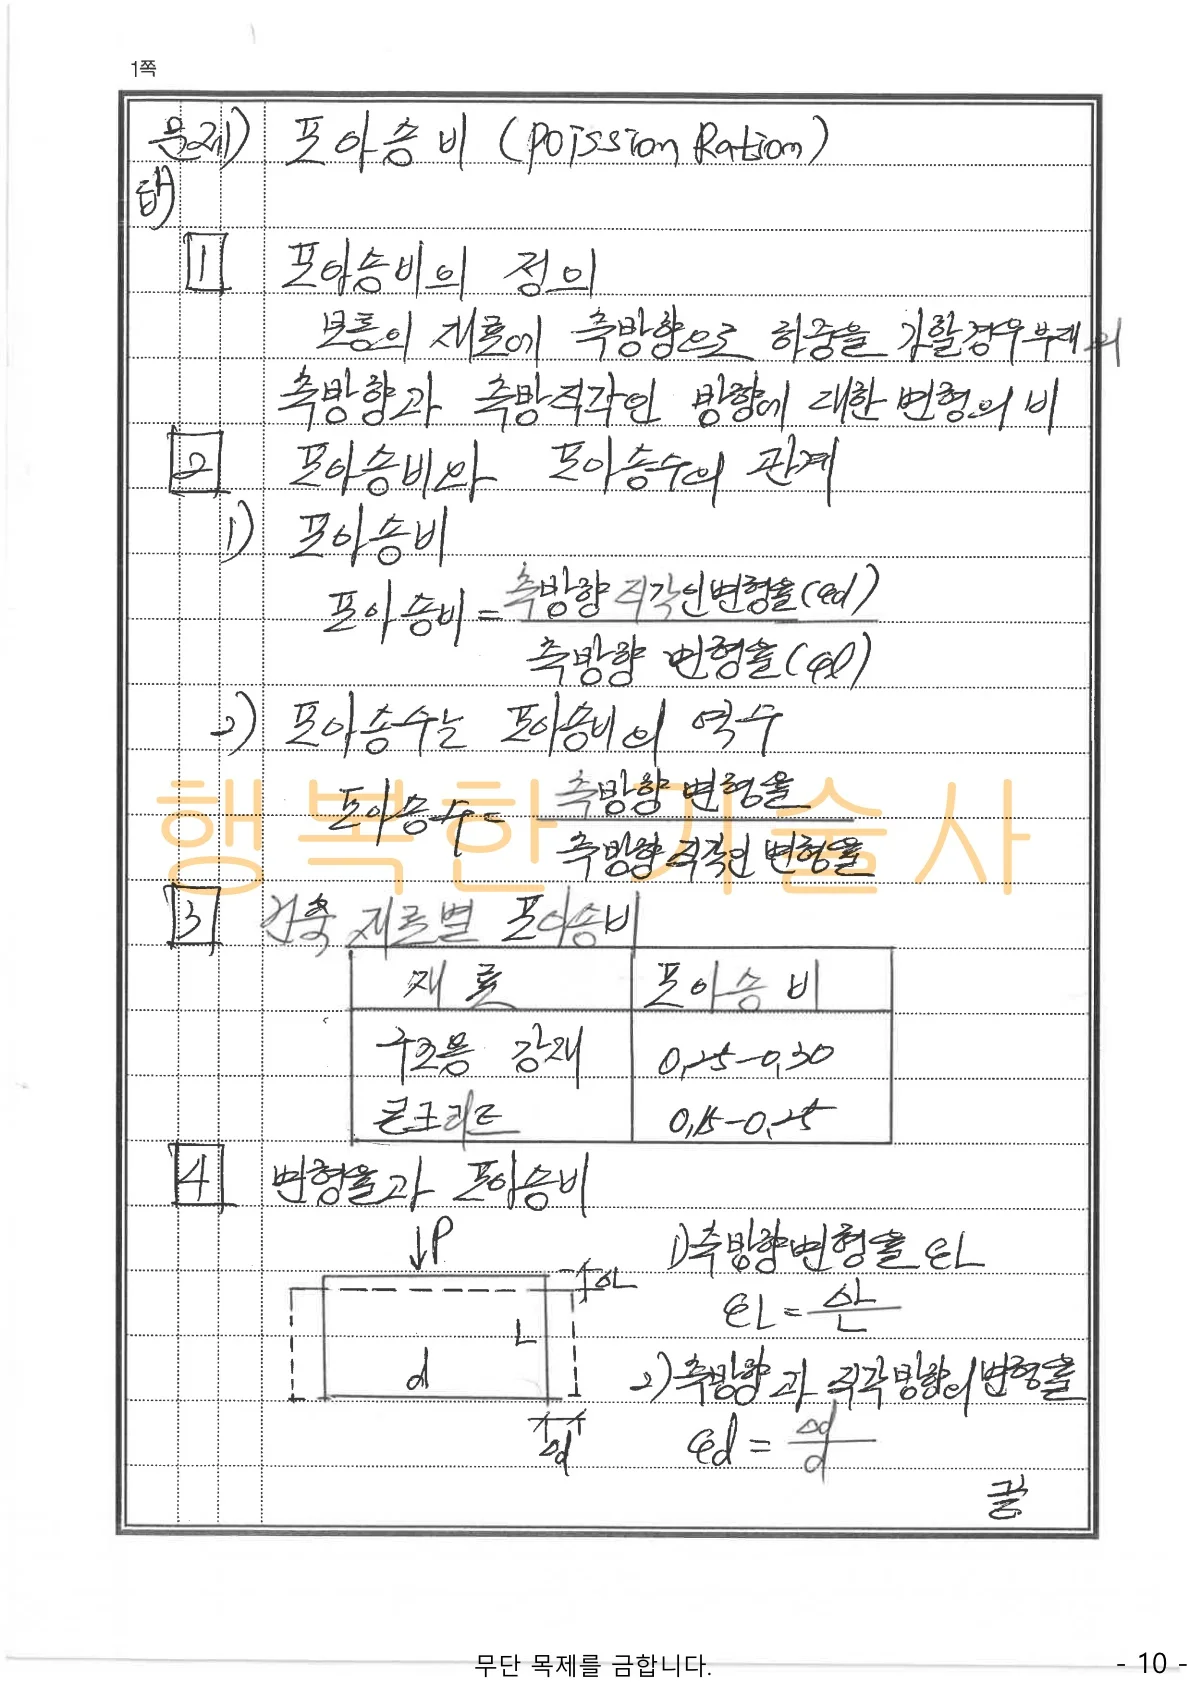 1쪽
문제) 포아송비 (Poission Ration)
답)
1 포아송비의 정의
보통의 재료에 축방향으로 하중을 가할경우 부재의
축방향과 축방직각인 방향에 대한 변형의 비
2 포아송비와 포아송수의 관계
1) 포아송비
포아송비 = 축방향 직각인변형율(εd)
축방향 변형율(εl)
2) 포아송수는 포아송비의 역수
포아송수 = 축방향 변형율
축방향 직각인 변형율
행복한기술사
3 건축 재료별 포아송비
재료 포아송비
구조용 강재 0,25-0,30
콘크리트 0,15-0,25
4 변형율과 포아송비
P
1) 축방향변형율 εL
ΔL
εL = ΔL
L
L
d
2) 축방향과 직각방향의변형율
Δd
εd = Δd
d
끝
무단 목제를 금합니다.
- 10 -